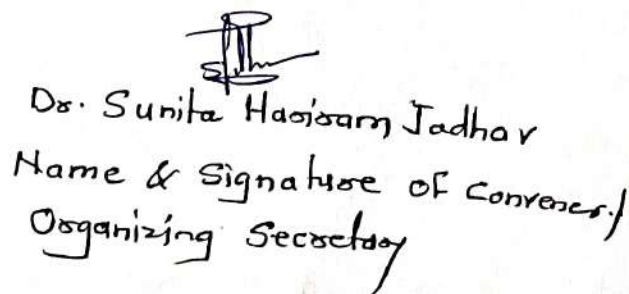 Dr. Sunita Hariram Jadhav
Name & Signature of Convener./
Organizing Secretary